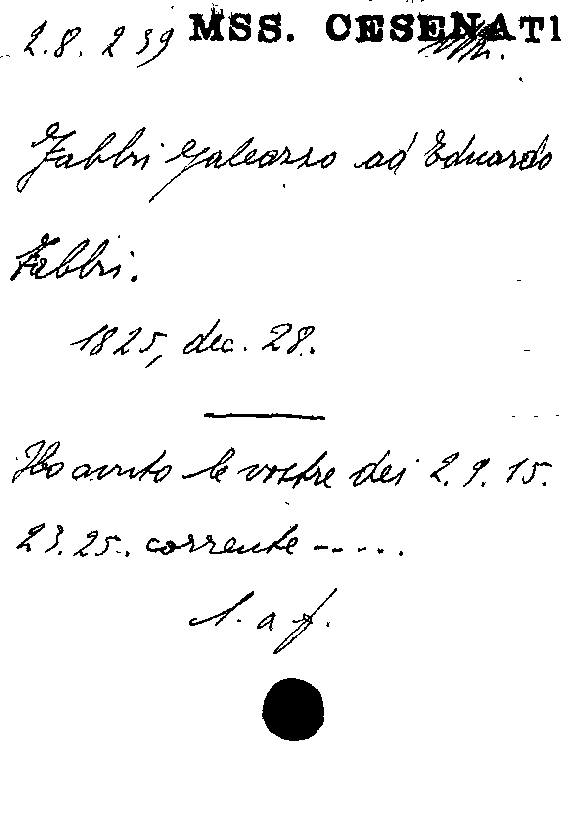 MSS. CESENATI
2.8.239
Fabbri Galeazzo ad Eduardo
Fabbri.
1825, dec. 28.
Ho avuto le vostre dei 2.9.15.
23.25. corrente -----.
l. a f.